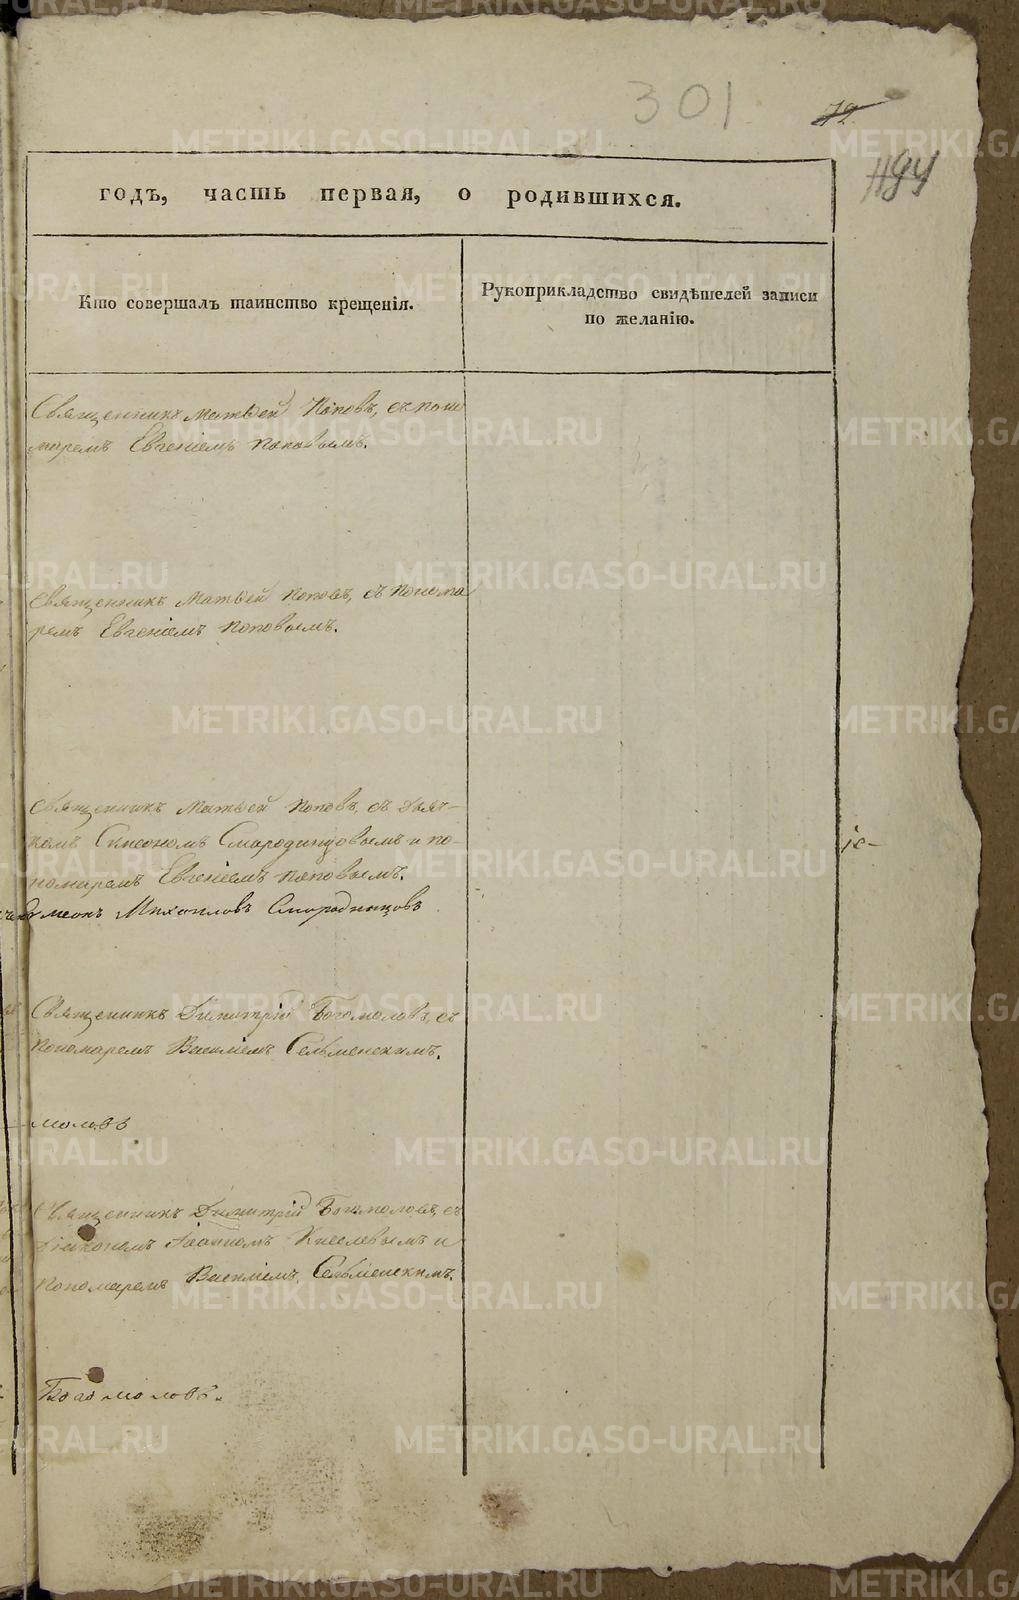 301
72
1194
годъ, часть первая, о родившихся.
Кто совершалъ таинство крещенія.
Рукоприкладство свидѣтелей записи
по желанію.
Священникъ Матѳей Поповъ, съ поно
маремъ Евгеніемъ Поповымъ.
Священникъ Матѳей Поповъ, съ понома
ремъ Евгеніемъ Поповымъ.
Священникъ Матѳей Поповъ, съ дьяч-
комъ Симеономъ Смародинцовымъ и по-
номаремъ Евгеніемъ Поповымъ.
Симеонъ Михаиловъ Смородинцовъ
іе-
Священникъ Димитрій Богомоловъ, съ
пономаремъ Василіемъ Сельменскимъ.
моловъ
Священникъ Димитрій Богомоловъ, съ
Діакономъ Іоанномъ Киселевымъ и
Пономаремъ Василіемъ Сельменскимъ.
Богомоловъ.
METRIKI.GASO-URAL.RU